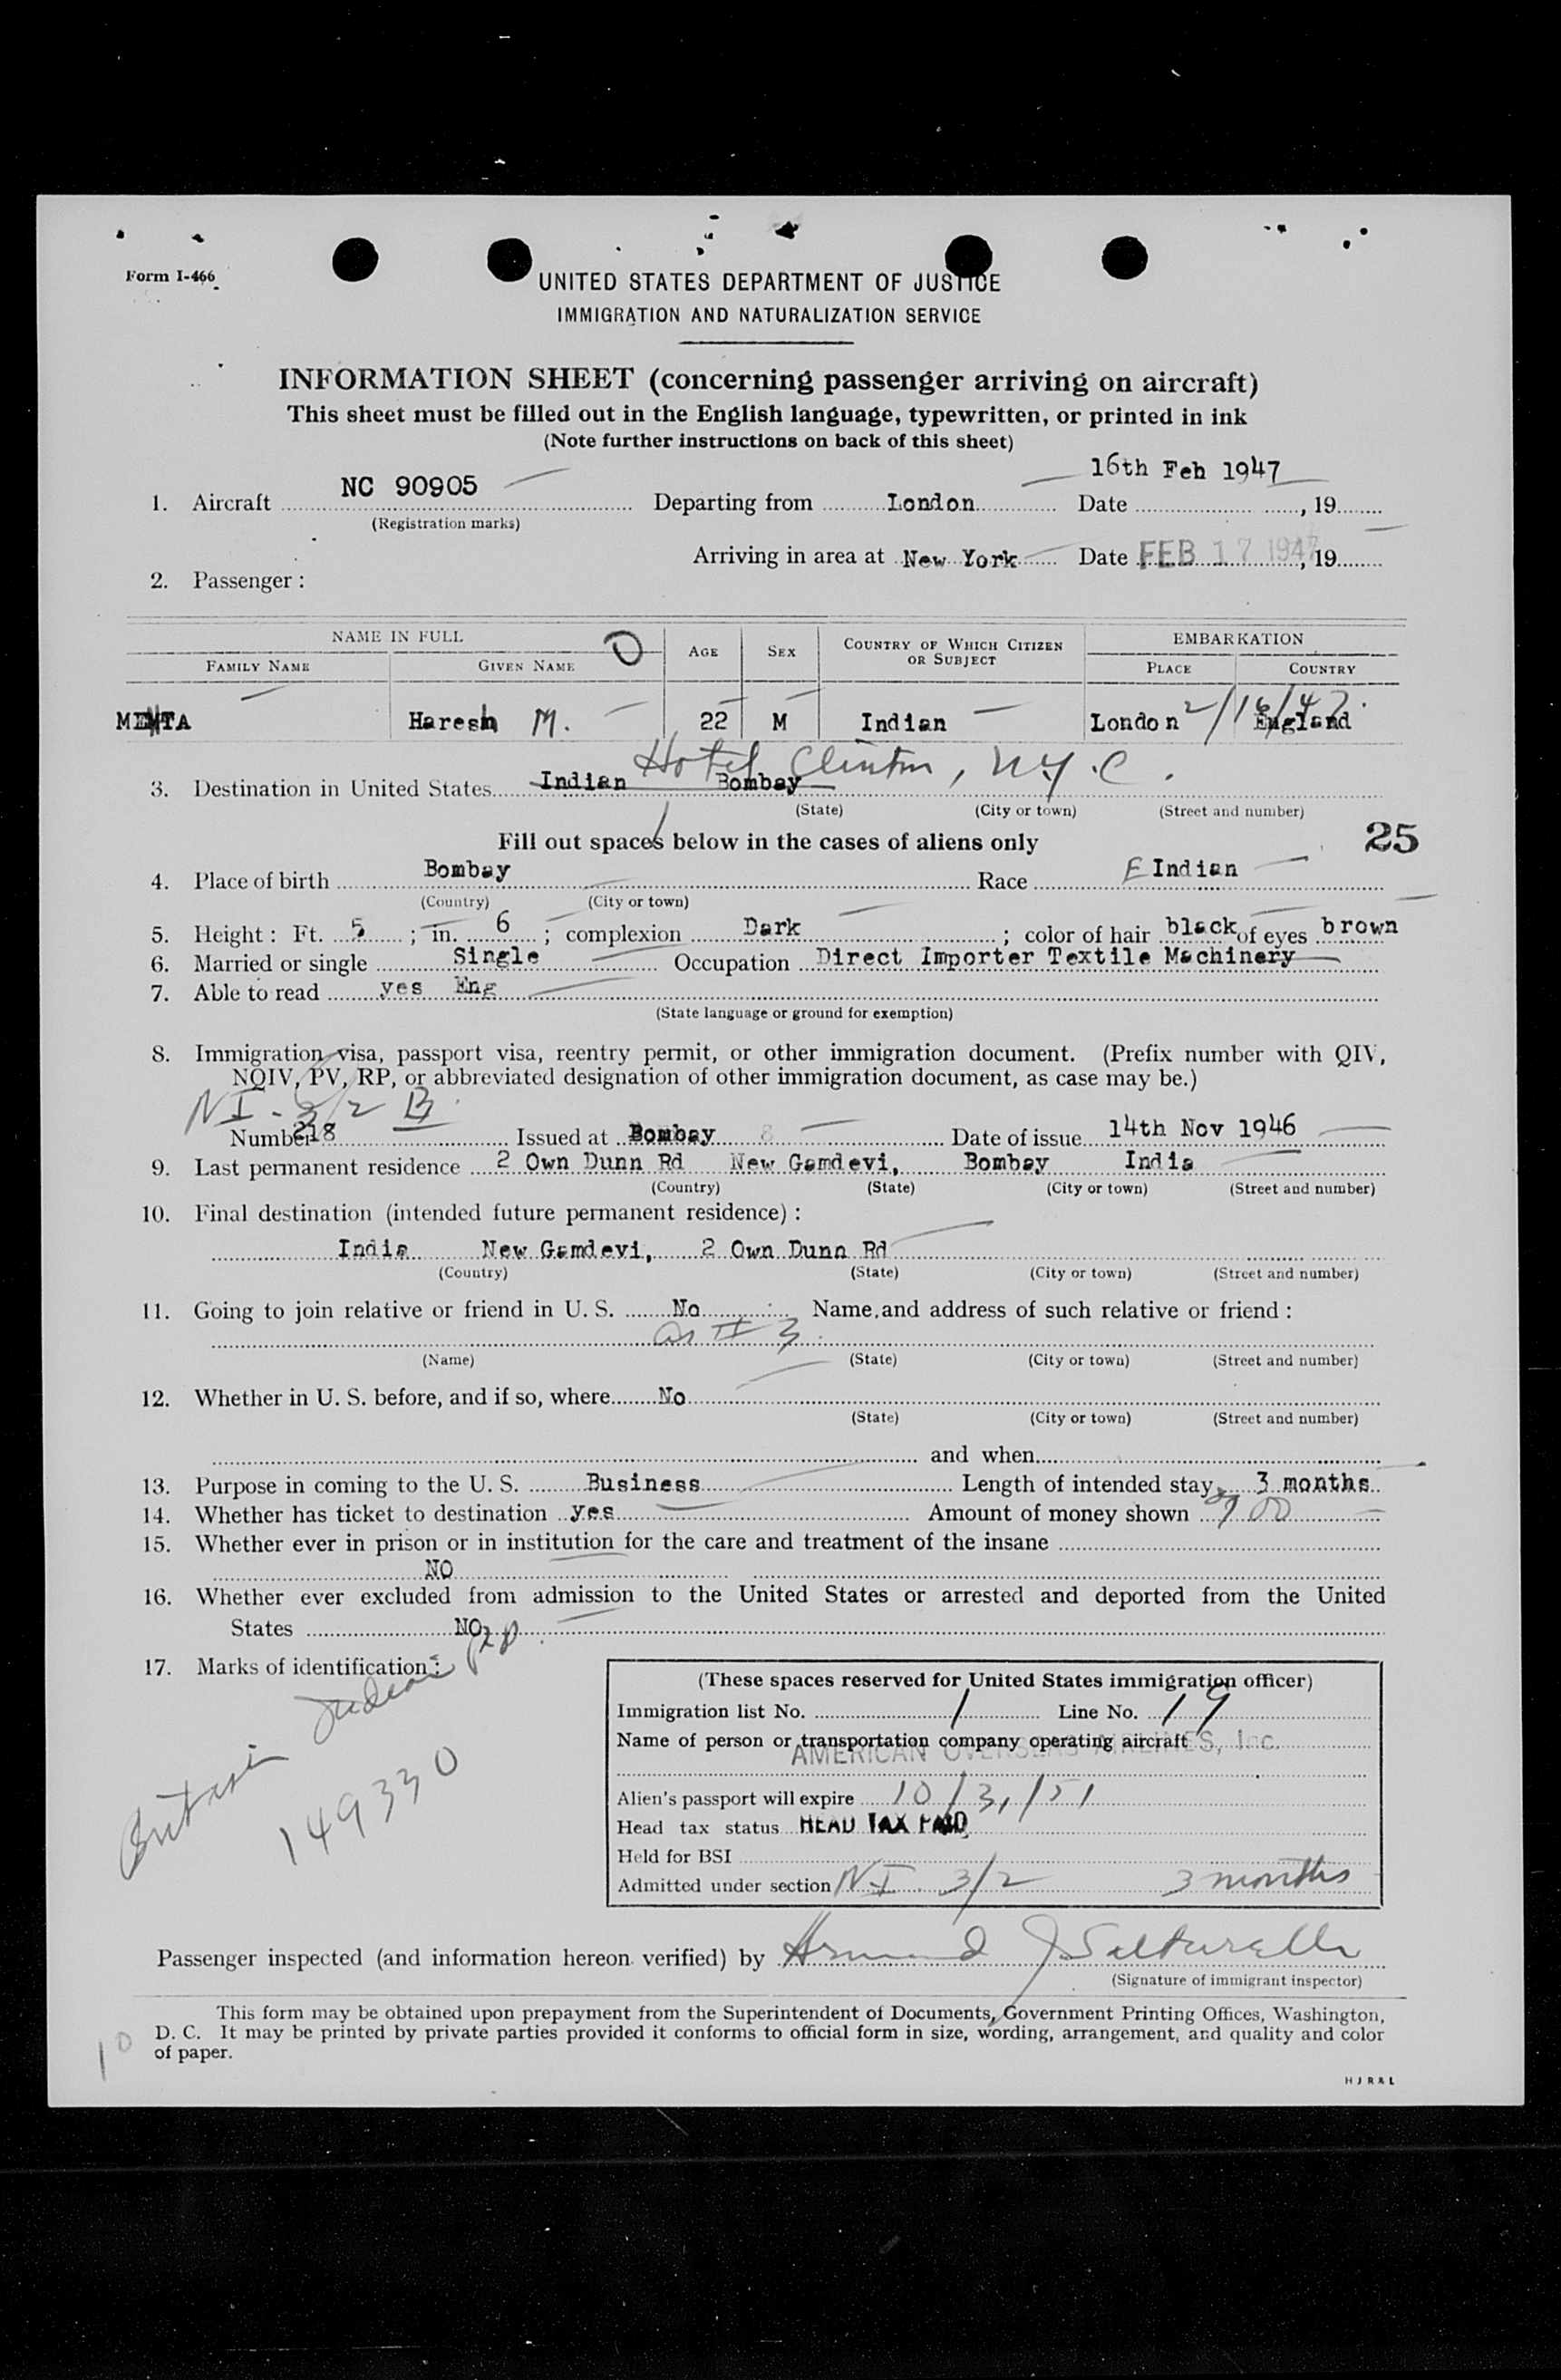 Form I-466
UNITED STATES DEPARTMENT OF JUSTICE
IMMIGRATION AND NATURALIZATION SERVICE
INFORMATION SHEET (concerning passenger arriving on aircraft)
This sheet must be filled out in the English language, typewritten, or printed in ink
(Note further instructions on back of this sheet)
1. Aircraft NC 90905 Departing from London Date 16th Feb 1947, 19
(Registration marks)
Arriving in area at New York Date FEB 17 1947, 19
2. Passenger:
NAME IN FULL O AGE SEX COUNTRY OF WHICH CITIZEN OR SUBJECT EMBARKATION
FAMILY NAME GIVEN NAME PLACE COUNTRY
Haresh M. 22 M Indian London 2/16/47. England
Hotel Clinton, N.Y.C.
3. Destination in United States Indian Bombay
(State) (City or town) (Street and number)
Fill out spaces below in the cases of aliens only 25
4. Place of birth Bombay Race E Indian
(Country) (City or town)
5. Height: Ft. 5; in. 6; complexion Dark; color of hair black of eyes brown
6. Married or single Single Occupation Direct Importer Textile Machinery
7. Able to read yes Eng
(State language or ground for exemption)
8. Immigration visa, passport visa, reentry permit, or other immigration document. (Prefix number with QIV,
NQIV, PV, RP, or abbreviated designation of other immigration document, as case may be.)
NI - 3/2 B
Number 218 Issued at Bombay Date of issue 14th Nov 1946
9. Last permanent residence 2 Own Dunn Rd New Gamdevi, Bombay India
(Country) (State) (City or town) (Street and number)
10. Final destination (intended future permanent residence):
India New Gamdevi, 2 Own Dunn Rd
(Country) (State) (City or town) (Street and number)
11. Going to join relative or friend in U. S. No Name and address of such relative or friend:
as # 3
(Name) (State) (City or town) (Street and number)
12. Whether in U. S. before, and if so, where No
(State) (City or town) (Street and number)
and when
13. Purpose in coming to the U. S. Business Length of intended stay 3 months
14. Whether has ticket to destination yes Amount of money shown
15. Whether ever in prison or in institution for the care and treatment of the insane
NO
16. Whether ever excluded from admission to the United States or arrested and deported from the United
States NO
17. Marks of identification:
British Indian
149330
(These spaces reserved for United States immigration officer)
Immigration list No. 1 Line No. 19
Name of person or transportation company operating aircraft
AMERICAN OVERSEAS AIRLINES, Inc.
Alien's passport will expire 10/31/51
Head tax status HEAD TAX PAID
Held for BSI
Admitted under section NI 3/2 3 months
Passenger inspected (and information hereon verified) by Armand J. Salturelli
(Signature of immigrant inspector)
This form may be obtained upon prepayment from the Superintendent of Documents, Government Printing Offices, Washington,
D. C. It may be printed by private parties provided it conforms to official form in size, wording, arrangement, and quality and color
of paper.
10
H J R & L